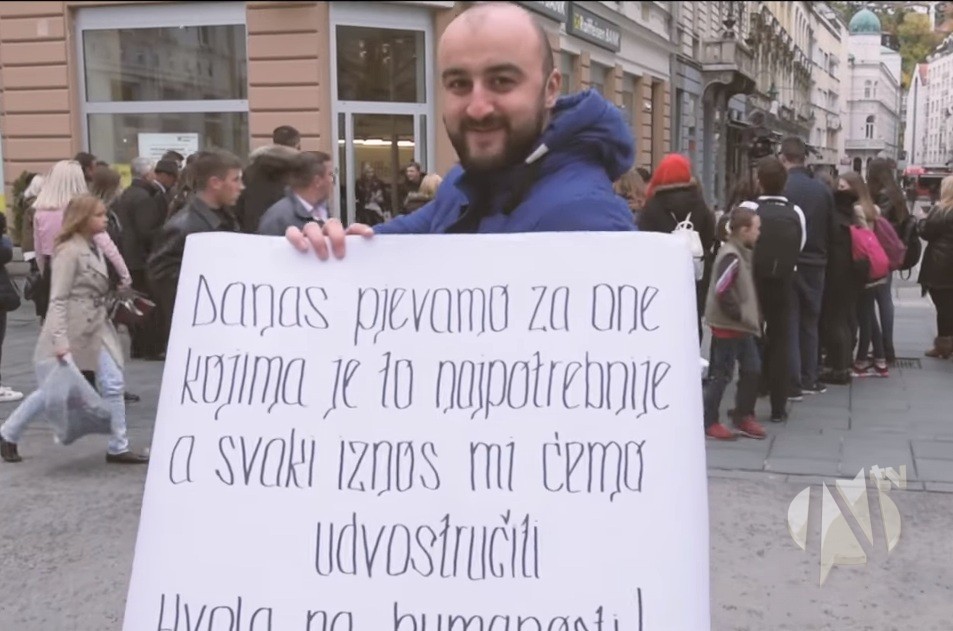 Raiffeisen BANK
Danas pjevamo za one
kojima je to najpotrebnije
a svaki iznos mi ćemo
udvostručiti
Hvala na humanosti!
N tv